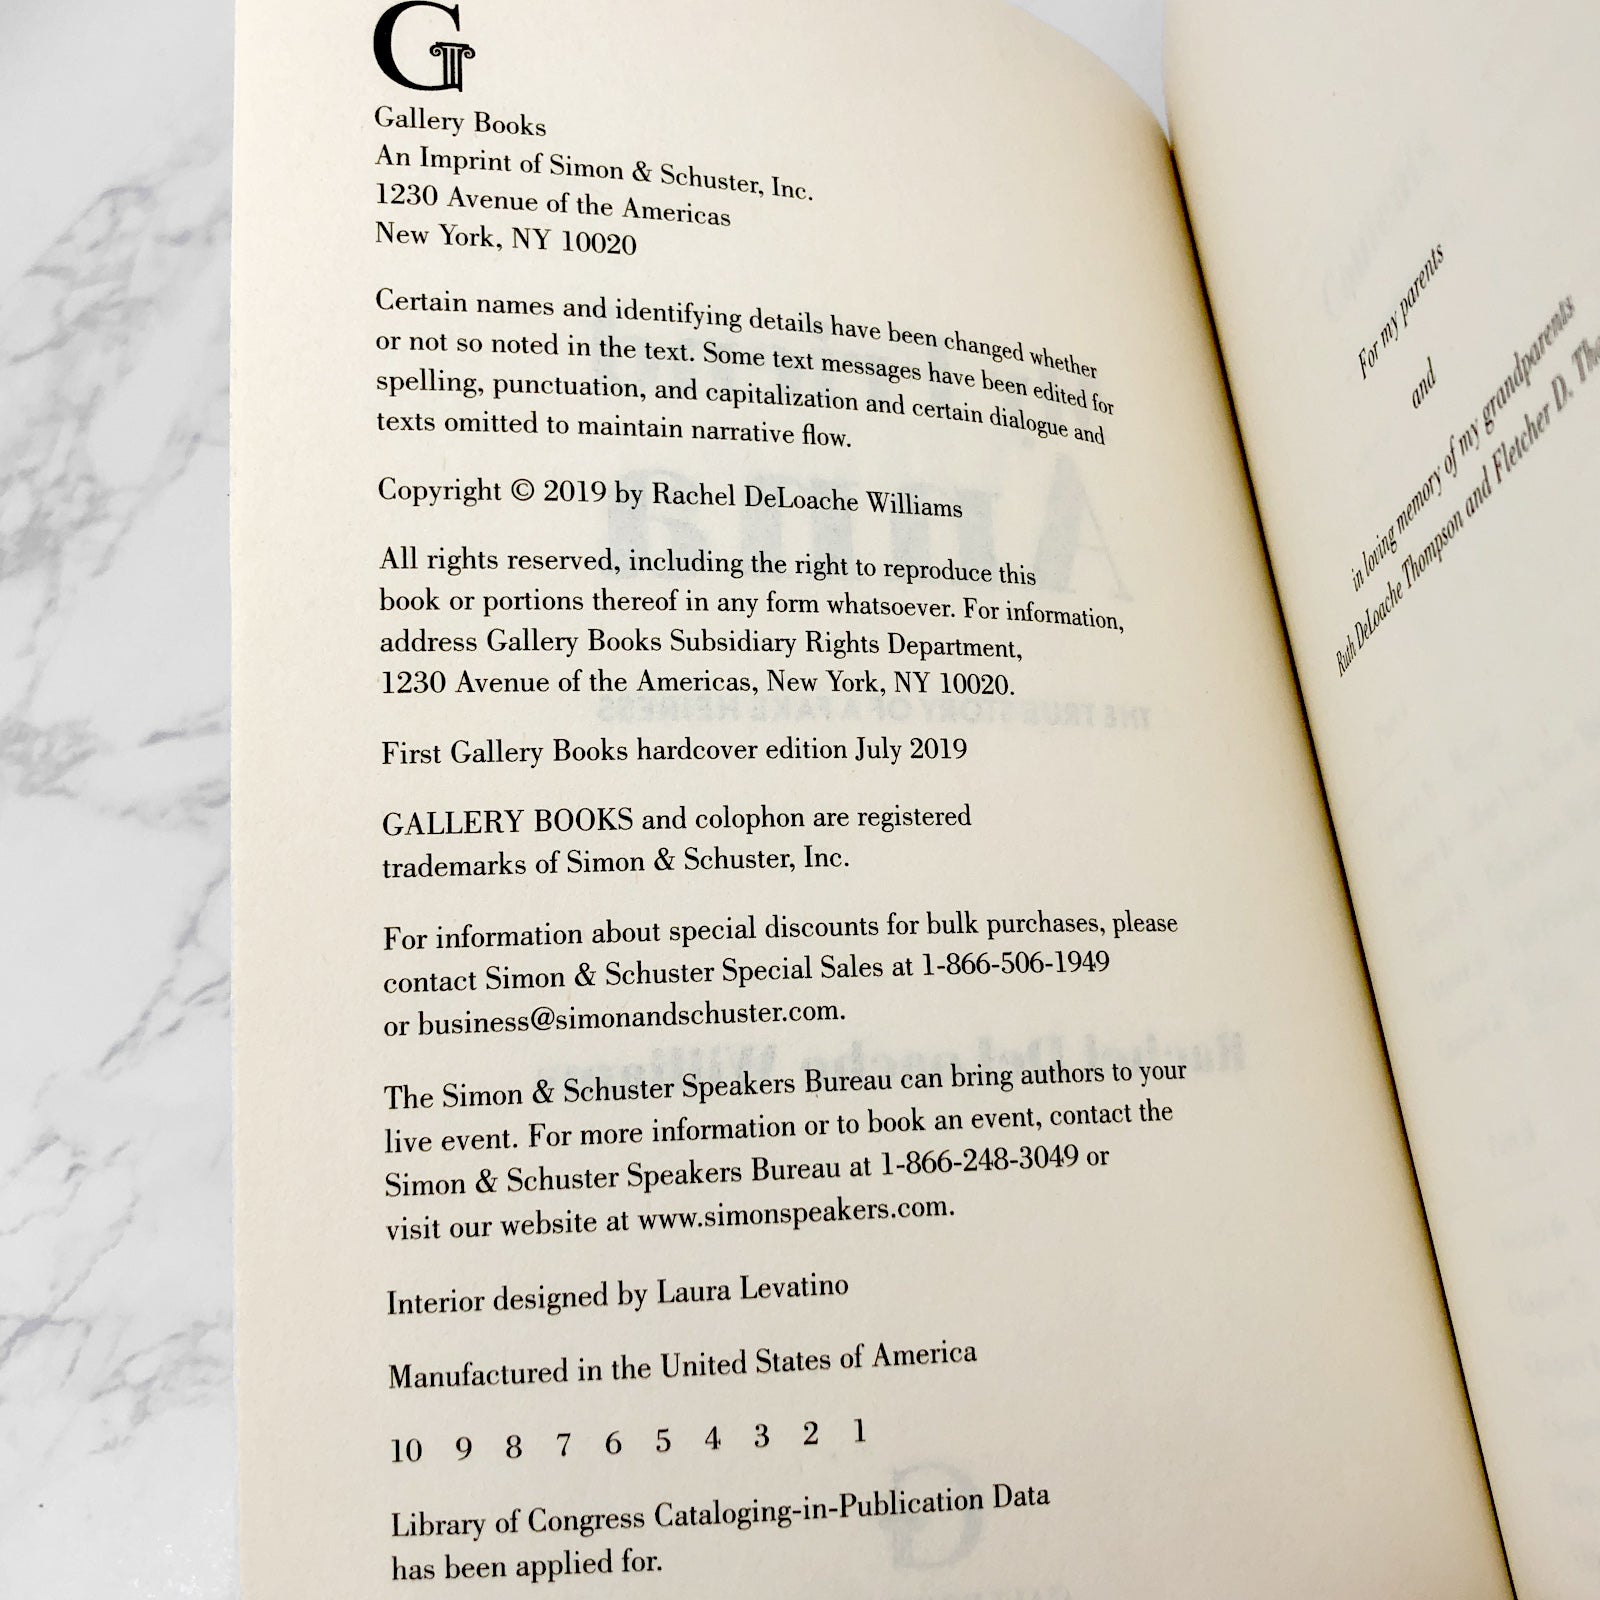 G
Gallery Books
An Imprint of Simon & Schuster, Inc.
1230 Avenue of the Americas
New York, NY 10020
Certain names and identifying details have been changed whether
or not so noted in the text. Some text messages have been edited for
spelling, punctuation, and capitalization and certain dialogue and
texts omitted to maintain narrative flow.
Copyright © 2019 by Rachel DeLoache Williams
All rights reserved, including the right to reproduce this
book or portions thereof in any form whatsoever. For information,
address Gallery Books Subsidiary Rights Department,
1230 Avenue of the Americas, New York, NY 10020.
First Gallery Books hardcover edition July 2019
GALLERY BOOKS and colophon are registered
trademarks of Simon & Schuster, Inc.
For information about special discounts for bulk purchases, please
contact Simon & Schuster Special Sales at 1-866-506-1949
or business@simonandschuster.com.
The Simon & Schuster Speakers Bureau can bring authors to your
live event. For more information or to book an event, contact the
Simon & Schuster Speakers Bureau at 1-866-248-3049 or
visit our website at www.simonspeakers.com.
Interior designed by Laura Levatino
Manufactured in the United States of America
10 9 8 7 6 5 4 3 2 1
Library of Congress Cataloging-in-Publication Data
has been applied for.
For my parents
and
in loving memory of my grandparents
Ruth DeLoache Thompson and Fletcher D.